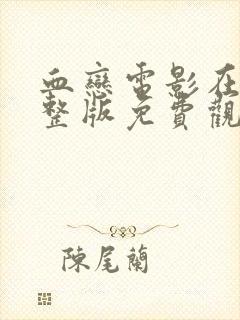 血戀電影在
整版免費觀
陳尾蘭